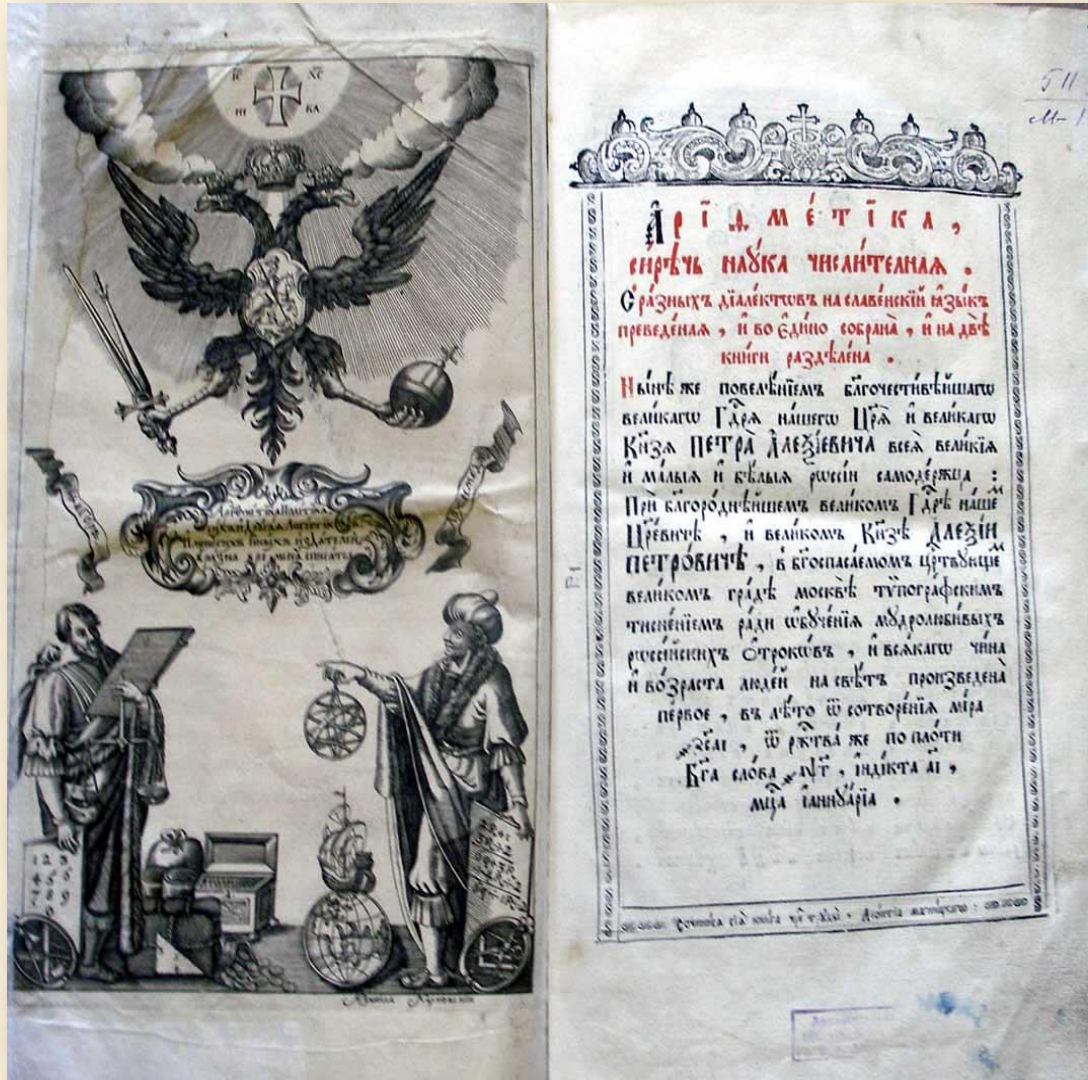 ІС ХС
НИ КА
511
М-1
Арїѳме́тїка,
си́рѣчь наѹ́ка числи́телная.
С̾ ра́зныхъ дїале́ктѡвъ на славе́нскїй ѧ҆зы́къ
преведе́ная, и҆ во є҆ди́но собрана̀, и҆ на двѣ̀
кни́ги раздѣлена̀.
Ны́нѣ же повелѣ́нїемъ бл҃гочести́вѣйшагѡ
вели́кагѡ Гдⷭ҇рѧ на́шегѡ Цр҃ѧ̀ и҆ вели́кагѡ
Кн҃зѧ ПЕТРА̀ А҆леѯі́евича всеѧ̀ вели́кїѧ
и҆ ма́лыѧ и҆ бѣ́лыѧ рѡссі́и самоде́ржца:
Прѝ бл҃горо́днѣйшемъ вели́комъ Гдⷭ҇рѣ на́шемъ
Цр҃е́вичѣ, и҆ вели́комъ Кн҃зѣ А҆леѯі́и
ПЕТРО́ВИЧѢ, в̾ бг҃оспаса́емомъ црⷭ҇твующемъ
вели́комъ гра́дѣ москвѣ̀ тѷпогра́фскимъ
тисне́нїемъ ра́ди ѡ҆бѹче́нїѧ мѹдролюби́выхъ
рѡссі́йскихъ ѻ҆́трокѡвъ, и҆ всѧ́кагѡ чи́на
и҆ во́зраста люде́й на свѣ́тъ произведена̀
пе́рвое, въ лѣ́то ѿ сотворе́нїѧ мі́ра
҂зс҃аі, ѿ ржⷭ҇тва̀ же по пло́ти
Бг҃а сло́ва ҂аѱ҃г, і҆ндї́кта а҃і,
мцⷭ҇а і҆аннѹа́рїа.
Сочини́сѧ сїѧ̀ кни́га чрез̾ трѹды̀ Леѡ́нтїа магни́цкагѡ:
1 2 3
4 5 6
7 8 9
0